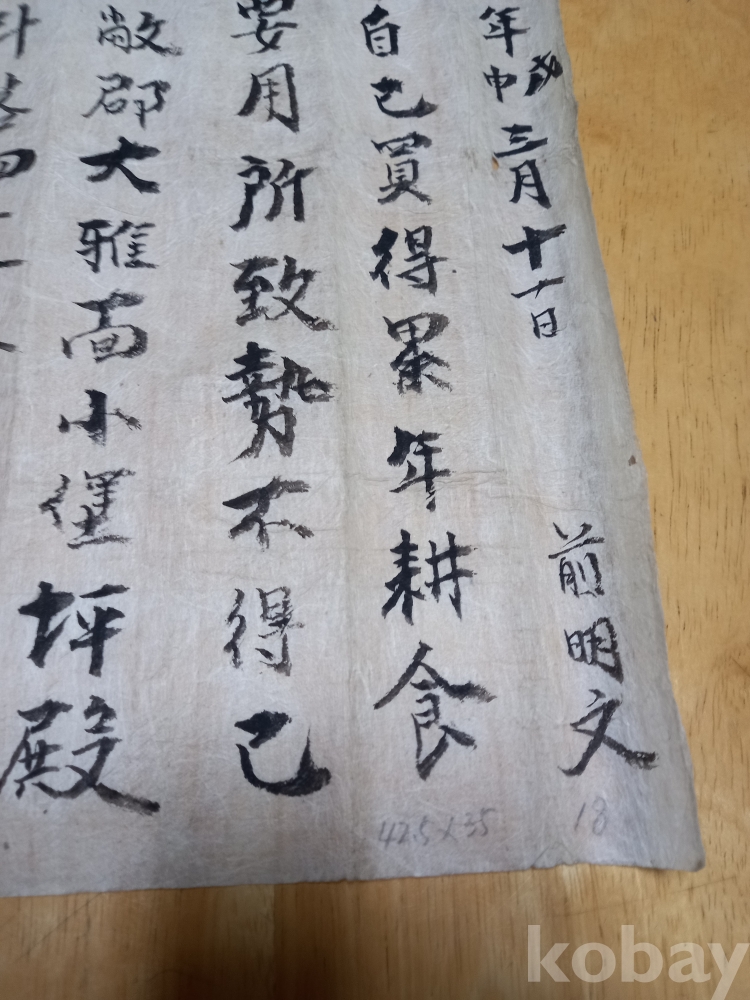 年戊申三月十一日 前明文
自己買得累年耕食
要用所致勢不得已
敞郡大雅面小堡坪殿
四
42.5 x 35
18
kobay